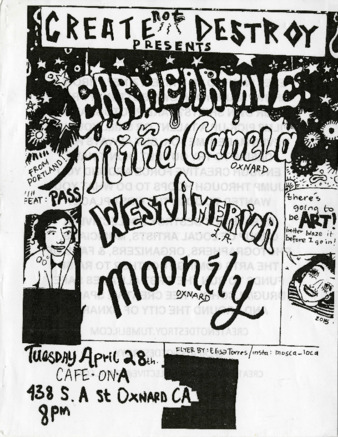 CREATE not DESTROY
PRESENTS
EARHEARTAVE
Niña Canela
OXNARD
FROM PORTLAND
FEAT: PASS
WESTAMERICA
L.A.
there's going to be ART!
better blaze it before I go in!
moonily
OXNARD
2015
Tuesday April 28th
CAFE·ON·A
438 S. A St OXNARD CA
8pm
FLYER BY: Elisa Torres/insta: mosca_loca